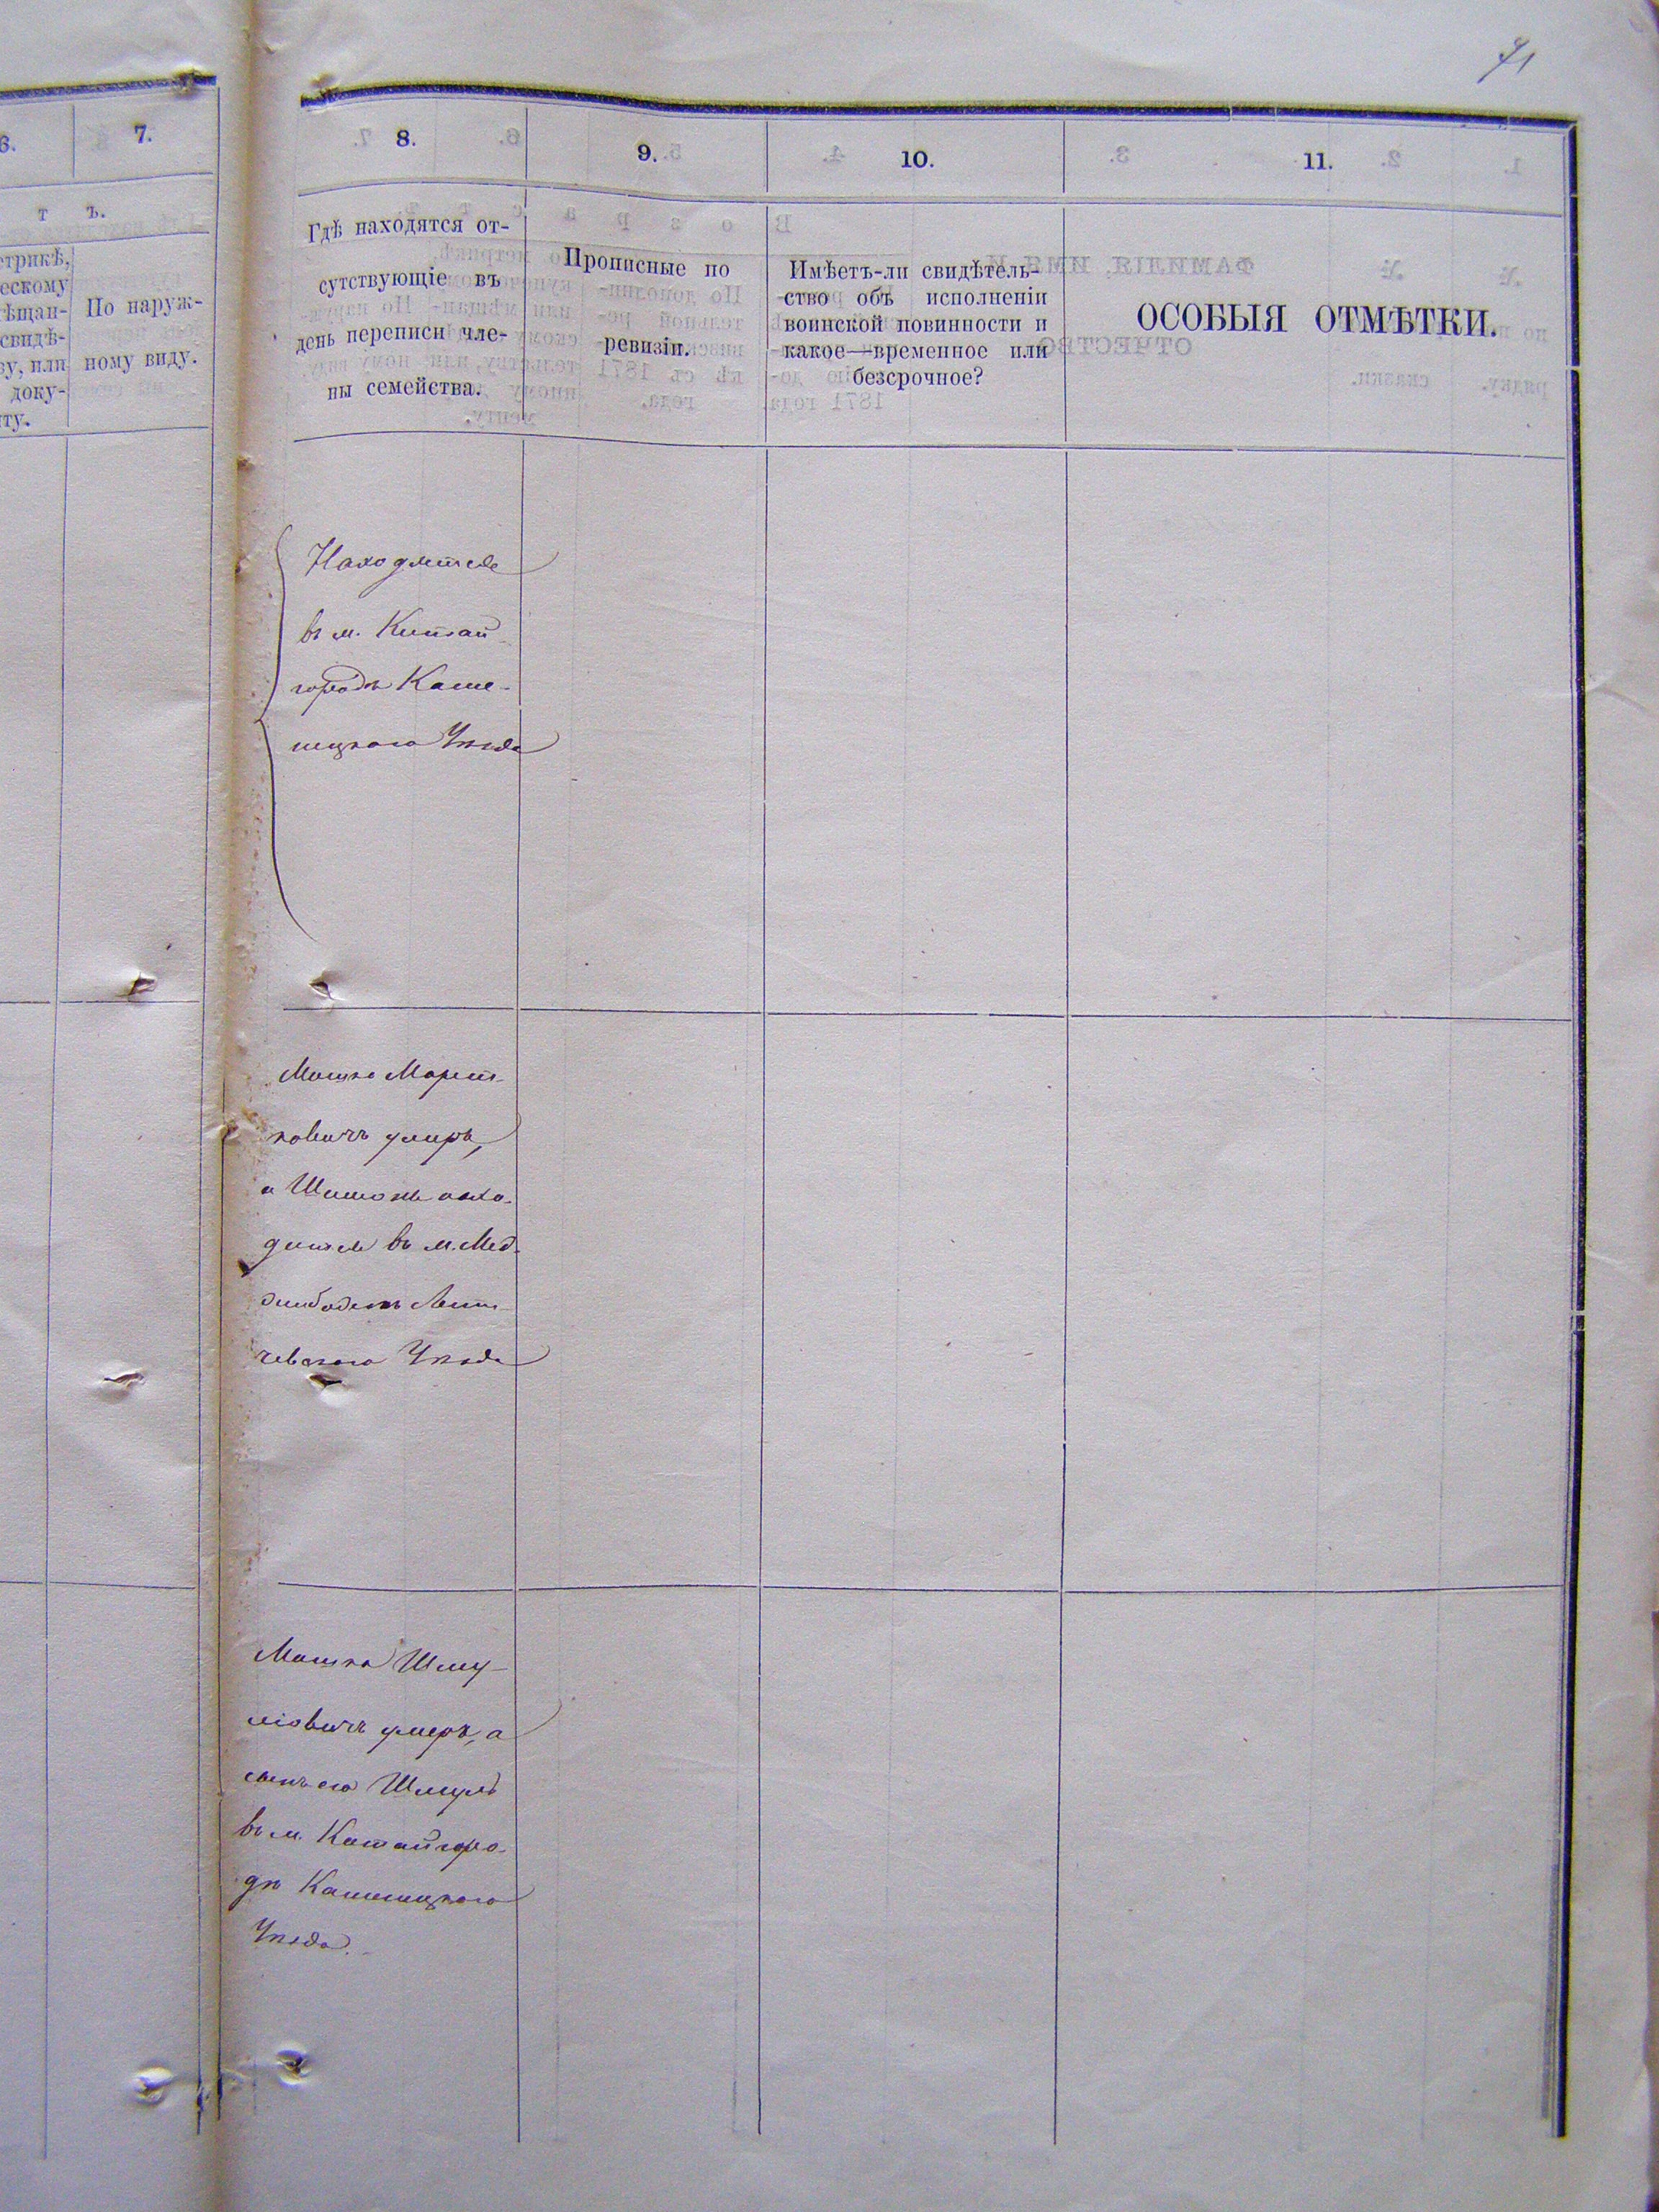 71
6.
7.
8.
9.
10.
11.
т ъ.
етрикѣ,
ескому
ѣщан-
свидѣ-
ву, или
доку-
нту.
По наруж-
ному виду.
Гдѣ находятся от-
сутствующіе въ
день переписи чле-
ны семейства.
Прописные по
ревизіи.
Имѣетъ-ли свидѣтель-
ство объ исполненіи
воинской повинности и
какое—временное или
безсрочное?
ОСОБЫЯ ОТМѢТКИ.
Находятся
въ м. Китай
городѣ Каме-
нецкаго Уѣзда
Мошко
умеръ,
а Шимонъ нахо-
дится въ м. Мед-
жибожѣ Лети-
чевскаго Уѣзда
Мошко Шму-
ліовичъ умеръ, а
сынъ его Шмуль
въ м. Китайгоро-
дѣ Каменецкаго
Уѣзда.